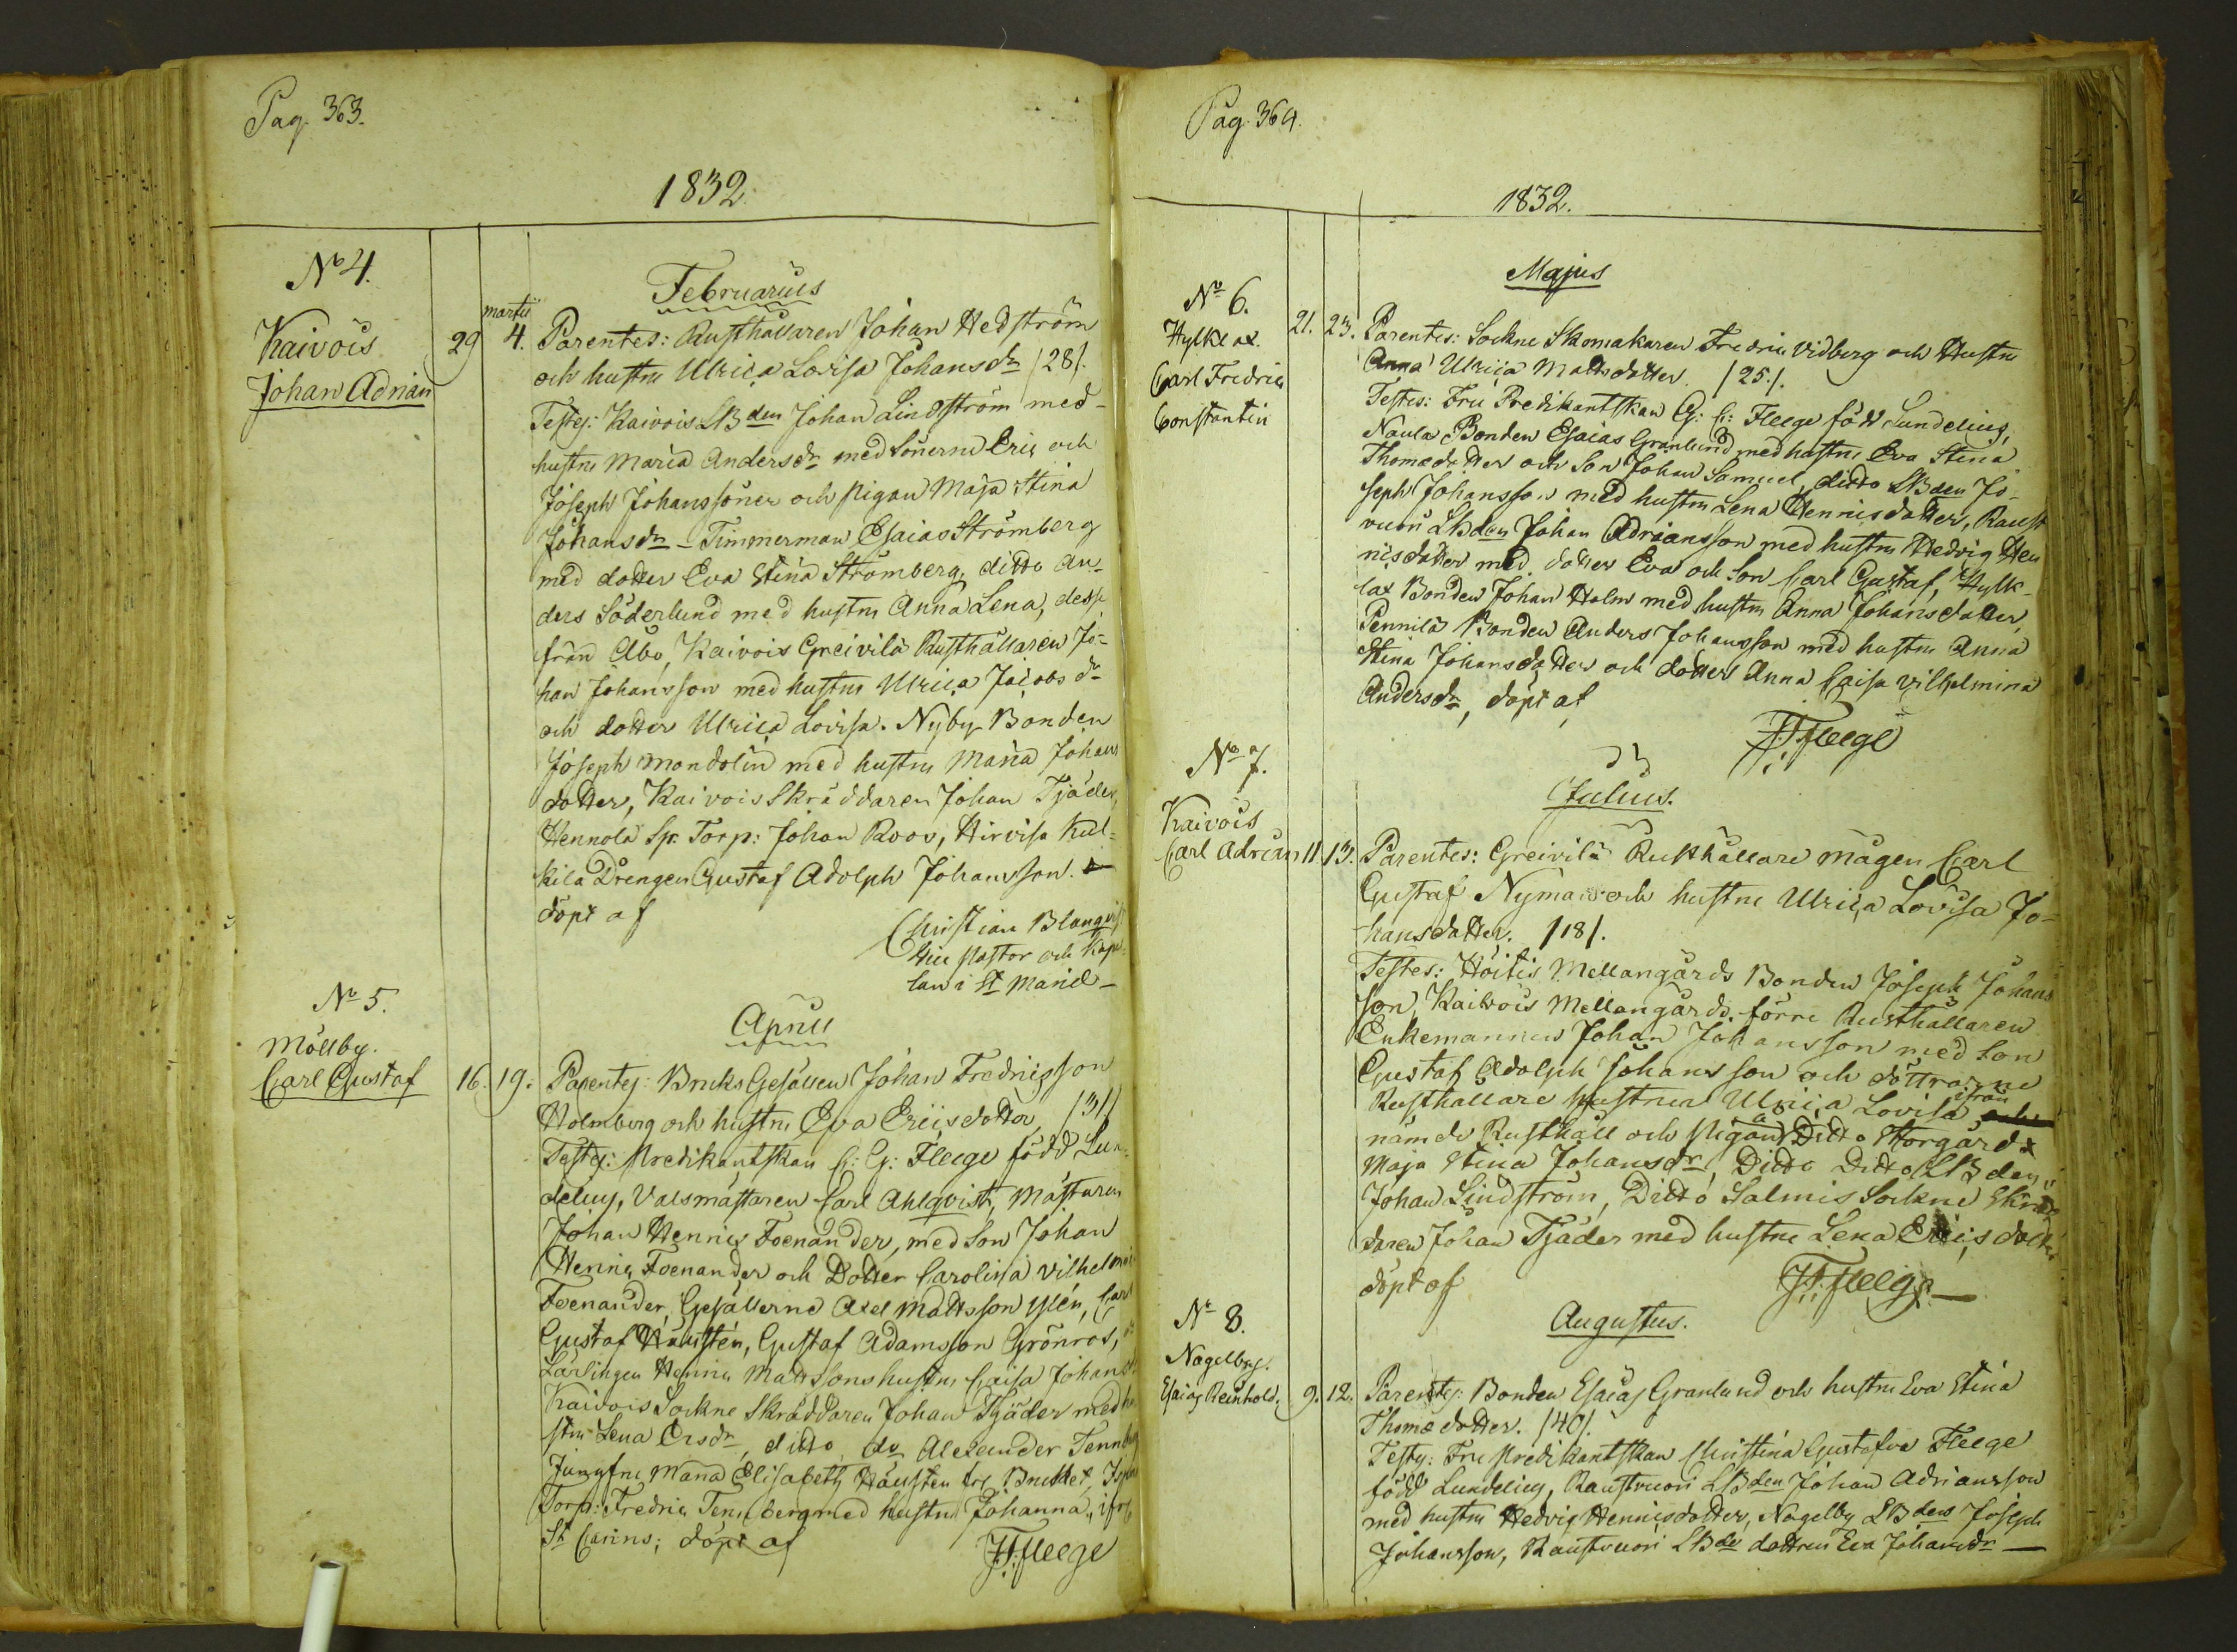 Pag. 363.
1832.
No 4.
Kaivois
Johan Adrian
29
martii
4.
Februarius
Parentes: Rusthållaren Johan Hedström
och hustru Ulrica Lovisa Johansdr /28/.
Testes: Kaivois LBden Johan Lindström med
hustru Maria Andersdr med Sönerne Eric och
Joseph Johanssöner och Pigan Maja Stina
Johansdr - Timmerman Esaias Strömberg
med dotter Eva Stina Strömberg, ditto An-
ders Söderlund med hustru Anna Lena, desse
från Åbo, Kaivois Greivilä Rusthållaren Jo-
han Johansson med hustru Ulrica Jacobsdr
och dotter Ulrica Lovisa. Nyby Bonden
Joseph Mandolin med hustru Maria Johans
dotter, Kaivois Skräddaren Johan Tjäder,
Hennola Sp. Torp: Johan Roos, Hirvisa Kul-
kila Drengen Gustaf Adolph Johansson.
döpt af
Christian Blanqvist
Vice Pastor och Kapel-
lan i St Mariæ
No 5.
Mällby.
Carl Gustaf
16.
19.
Aprill
Parentes: Bruks Gesällen Johan Fredricsson
Holmberg och hustru Eva Ericsdotter /31/
Testes: Predikantskan C: G: Fleege född Lun-
delius, Valsmästaren Carl Ahlqvist, Mästaren
Johan Henric Foenander, med Son Johan
Henric Foenander och Dotter Carolina Vilhelmi
Foenander, Gesällerne Axel Mattsson Ylén, Carl
Gustaf Häusten, Gustaf Adamsson Grönros,
Lärlingen Henric Mattsons hustru Caisa Johansdr
Kaivois Sockne Skräddaren Johan Tjäder med hu
stru Lena Ersdr, ditto do Alexander Tennberg
Jungfru Maria Elisabeth Häusten fr. Bruket,
Torp: Fredric Tennberg med hustru Johanna, ifrån
St Carins; döpt af
Fr: Fleege
Pag. 364.
1832.
No 6.
Hylkelax.
Carl Fredric
Constantin
21.
23.
Majus
Parentes: Sockne Skomakaren Fredric Vidberg och Hustru
Anna Ulrica Mattsdotter. /25./.
Testes: Fru Predikantskan C: G: Fleege född Lundelius,
Naula Bonden Esaias Granlund med hustru Eva Stina
Thomædotter och Son Johan Samuel, ditto LBden Jo-
seph Johansson med hustru Lena Henricsdotter, Raust
vuori LBden Johan Adriansson med hustru Hedvig Hen
ricsdotter med dotter Eva och Son Carl Gustaf, Hylk-
lax Bonden Johan Holm med hustru Anna Johansdotter,
Pennilä Bonden Anders Johansson med hustru Anna
Stina Johansdotter och dotter Anna Caisa Vilhelmina
Andersdr, döpt af
Fr: Fleege
No 7.
Kaivois
Carl Adrian
11.
13.
Julius.
Parentes: Greivilä Rusthållare mågen Carl
Gustaf Nyman och hustru Ulrica Lovisa Jo-
hansdotter. /18/.
Testes: Höitis Mellangårds Bonden Joseph Johans
son, Kaivois Mellangårds förre Rusthållaren
Enkemannen Johan Johansson med Son
Gustaf Adolph Johansson och döttrarne
Rusthållare hustrun Ulrica Lovisa ifrån
nämde Rusthåll och Pigan Ditto Storgård
Maja Stina Johansdr, Ditto Ditto LBden
Johan Lindström, Ditto Salmis Sockne Skräd
daren Johan Tjäder med hustru Lena Ericsdotter
döpt af
Fr: Fleege
No 8.
Nagelby.
Esaias Reinhold.
9.
12.
Augustus.
Parentes: Bonden Esaias Granlund och hustru Eva Stina
Thomædotter. /40/.
Testes: Fru Predikantskan Christina Gustafva Fleege
född Lundelius, Raustvuori LBden Johan Adriansson
med hustru Hedvig Henricsdotter, Nagelby LBden Joseph
Johansson, Raustvuori LBde dottren Eva Johansdr